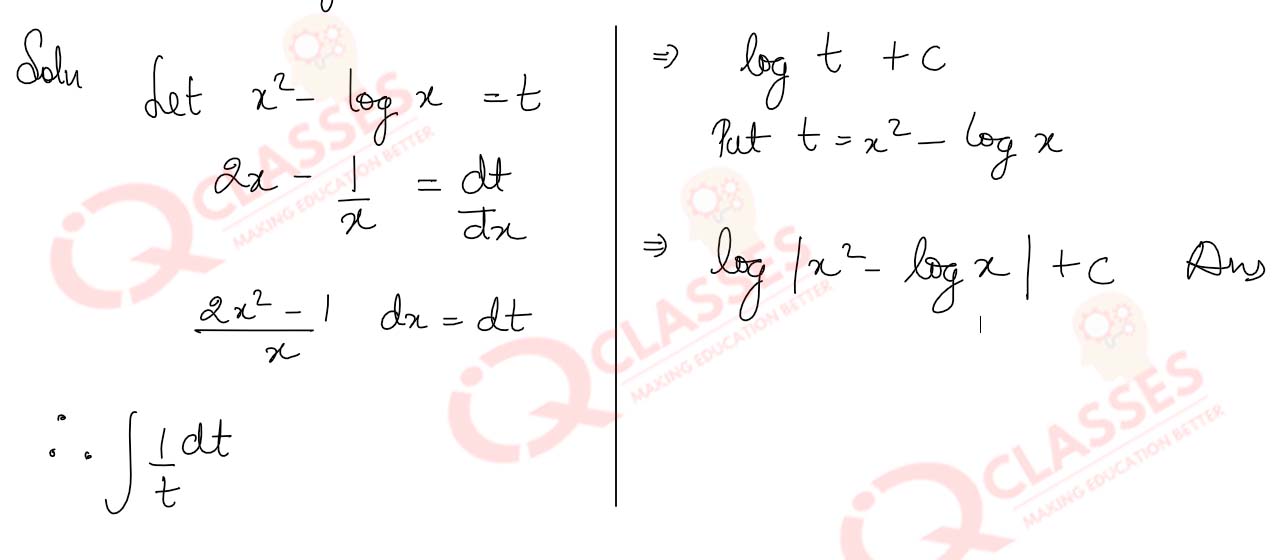 Soln Let x² - log x = t
2x - 1/x = dt/dx
(2x² - 1)/x dx = dt
∴ ∫ 1/t dt
⇒ log t + c
Put t = x² - log x
⇒ log |x² - log x| + c Ans
IQ CLASSES
MAKING EDUCATION BETTER
IQ CLASSES
MAKING EDUCATION BETTER
IQ CLASSES
MAKING EDUCATION BETTER